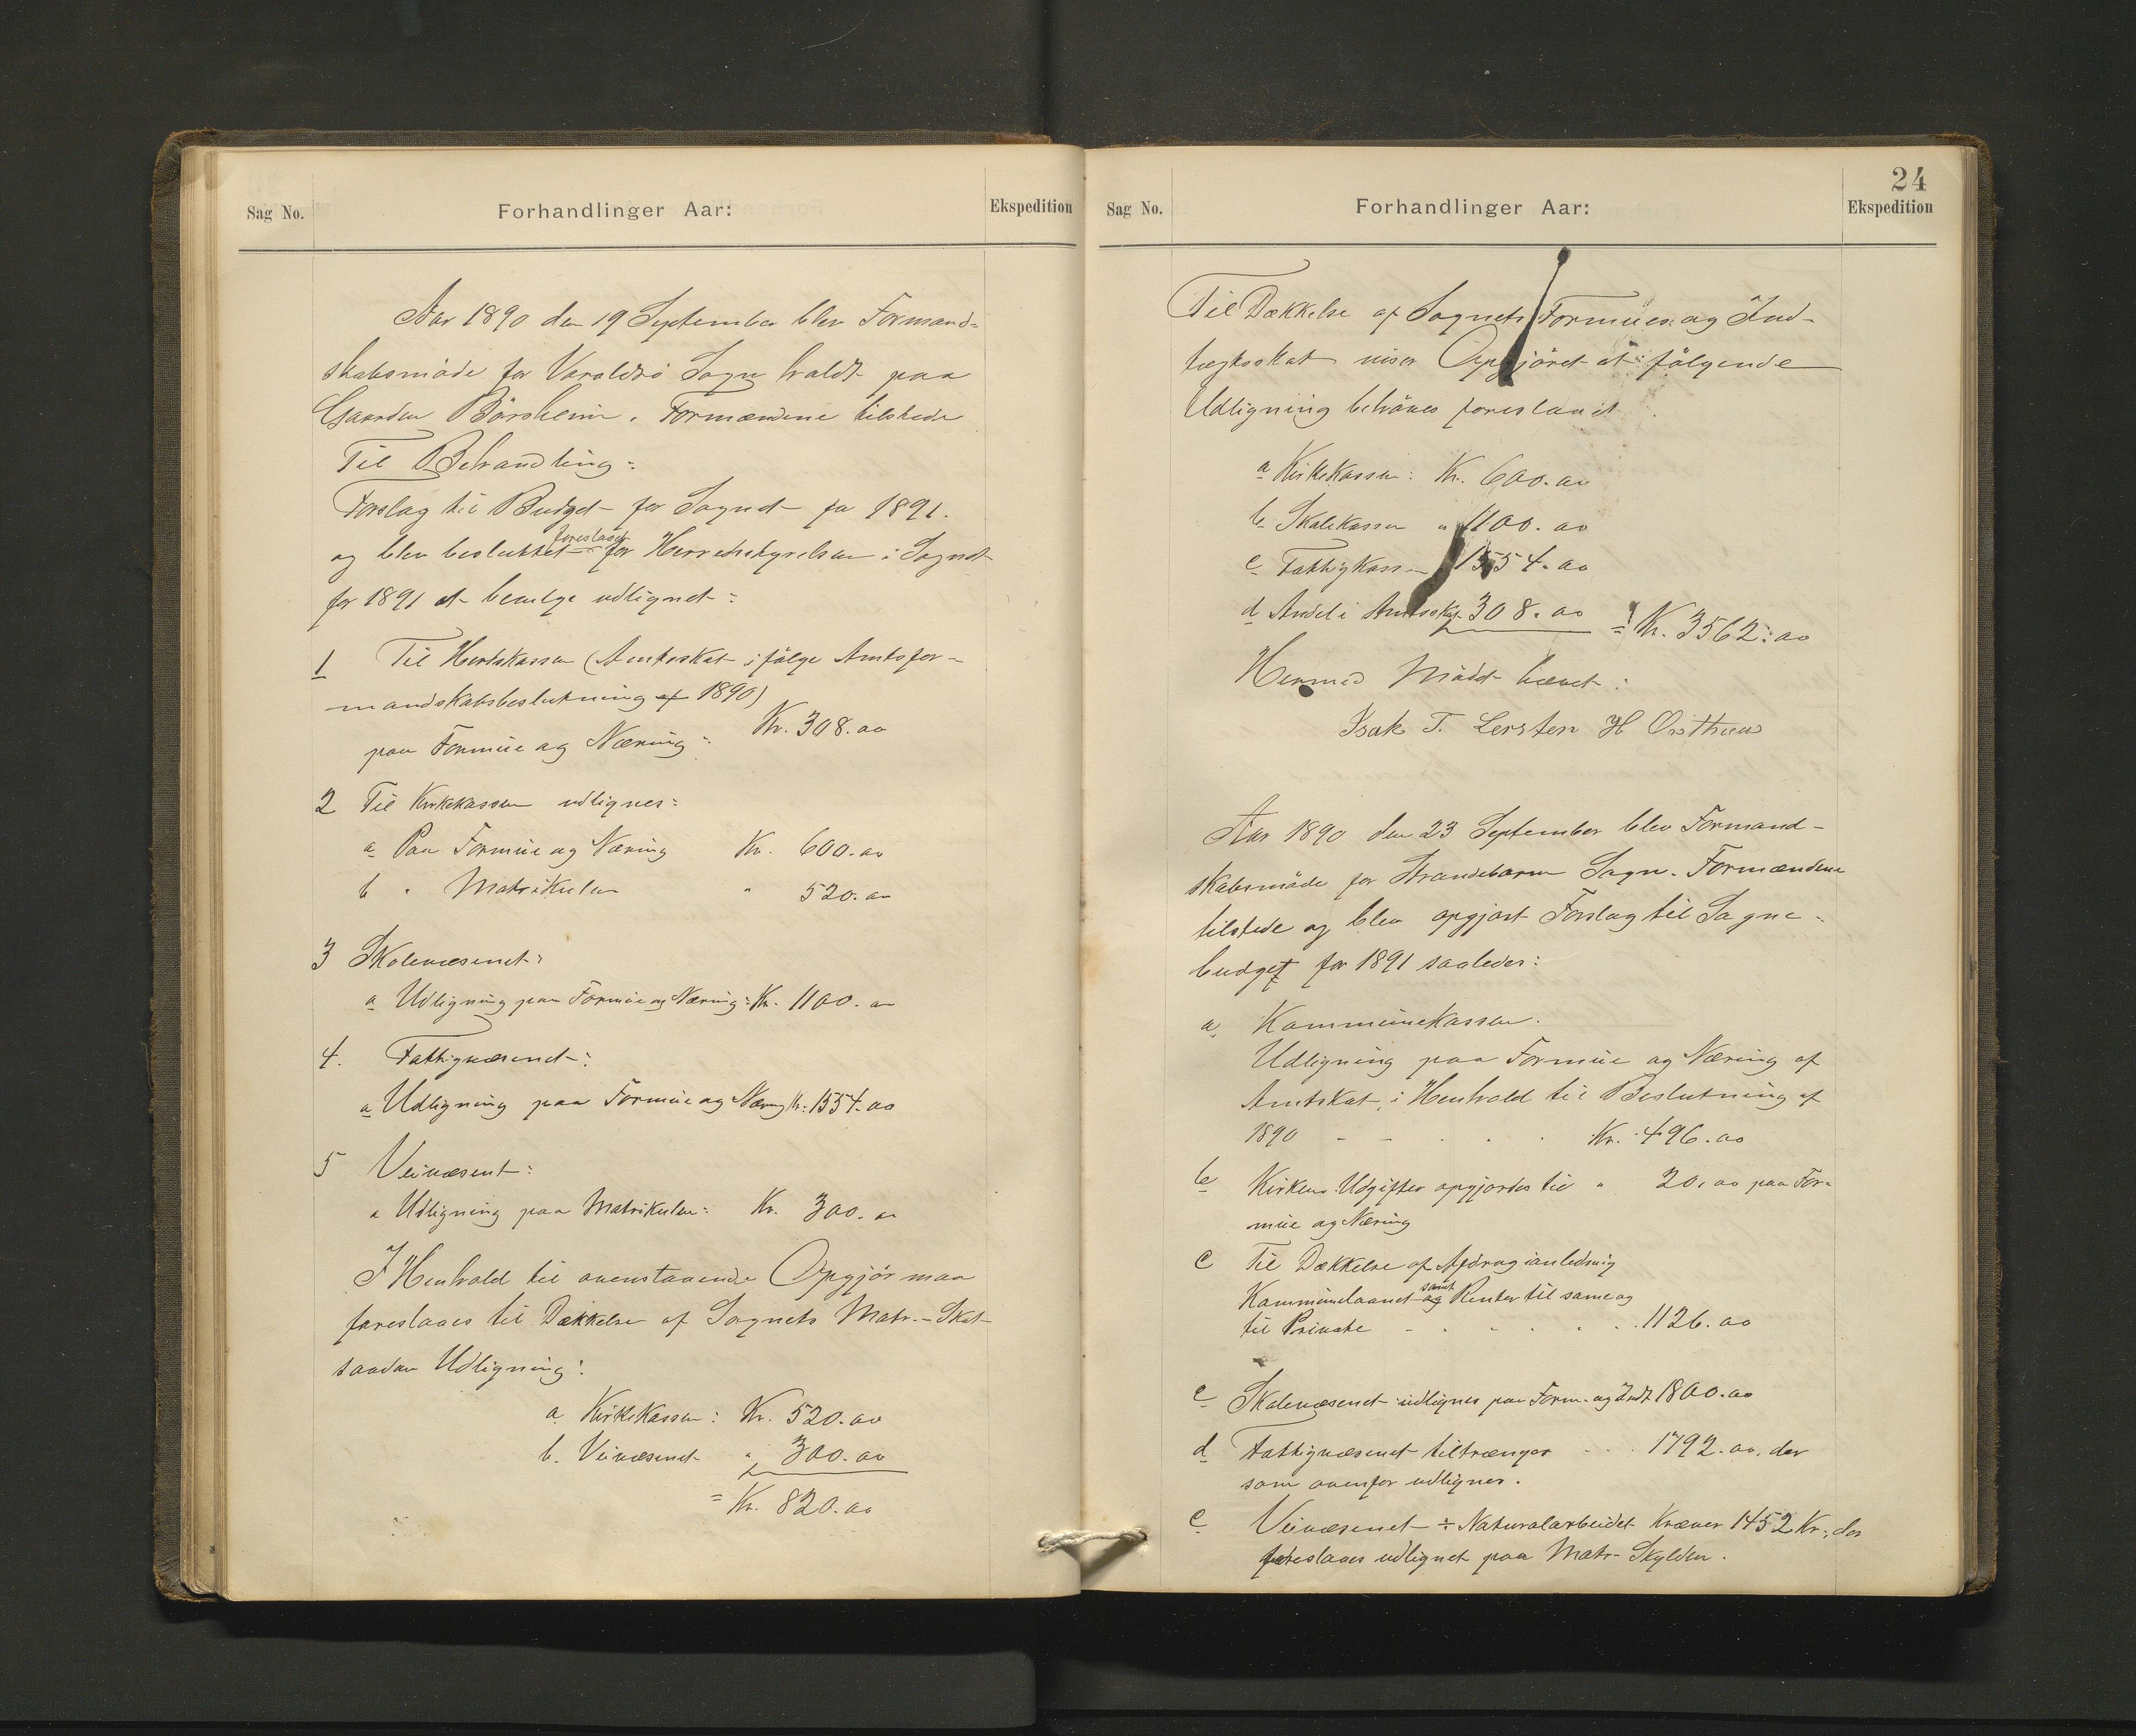 Sag No.
Forhandlinger Aar:
Ekspedition
Aar 1890 den 19 September blev Formand-
skabsmöde for Varaldsö Sogn holdt paa
Gaarden Börsheim. Formændene tilstede
Til Behandling:
Forslag til Budget for Sognet for 1891.
og blev besluttet foreslaaet for Herredsstyrelsen i Sognet
for 1891 at bevilge udlignet:
1 Til Herdskassen (Amtsskat ifölge Amtsfor-
mandskabsbeslutning af 1890)
paa Formue og Næring: Kr. 308.00
2 Til Kirkekassen udlignes:
a Paa Formue og Næring Kr. 600.00
b " Matrikulen " 520.00
3 Skolevæsenet:
a Udligning paa Formue og Næring: Kr. 1100.00
4. Fattigvæsenet:
a Udligning paa Formue og Næring Kr. 1554.00
5 Veivæsent:
a Udligning paa Matrikulen: Kr. 300.00
I Henhold til ovenstaaende Opgjör maa
foreslaaes til Dækkelse af Sognets Matr.-Skat
saadan Udligning:
a. Kirkekassen: Kr. 520.00
b. Veivæsenet " 300.00
= Kr. 820.00
24
Sag No.
Forhandlinger Aar:
Ekspedition
Til Dækkelse af Sognets Formues og Ind-
tægtsskat viser Opgjöret at fölgende
Udligning behöves foreslaaet
a Kirkekassen: Kr. 600.00
b. Skolekassen " 1100.00
c Fattigkassen 1554.00
d Andel i Amtsskat 308.00 = Kr. 3562:00
Hermed Mödet hævet:
Isak T. Lersten H Oısthuus
Aar 1890 den 23 September blev Formand-
skabsmöde for Strandebarm Sogn. Formændene
tilstede og blev opgjort Forslag til Sogne-
budget for 1891 saaledes:
a. Kommunekassen.
Udligning paa Formue og Næring af
Amtskat i Henhold til Beslutning af
1890 - - . . . Kr. 496.00
b Kirkens Udgifter opgjordes til " 20.00 paa For-
mue og Næring
c Til Dækkelse af Afdrag ianledning
Kommunelaanet samt og Renter til same og
til Private - . . . . . 1126.00
c Skolevæsenet udlignes paa Form. og Indt 1800.00
d Fattigvæsenet tiltrænger - . . 1792.00, der
som ovenfor udlignes.
e Veivæsenet ÷ Naturalarbeidet kræver 1452 Kr., der
foreslaaes udlignet paa Matr-Skylden.